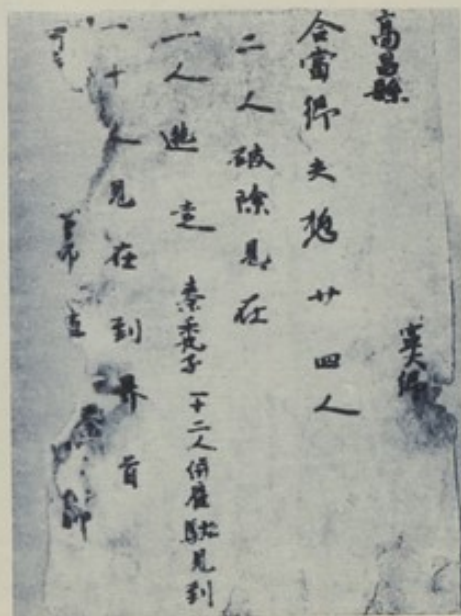 高昌縣 寧大鄉
合當鄉夫揔廿四人
二人破除見在
一人逃走 秦禿子 一十二人併雇馱見到
一十人見在到界首